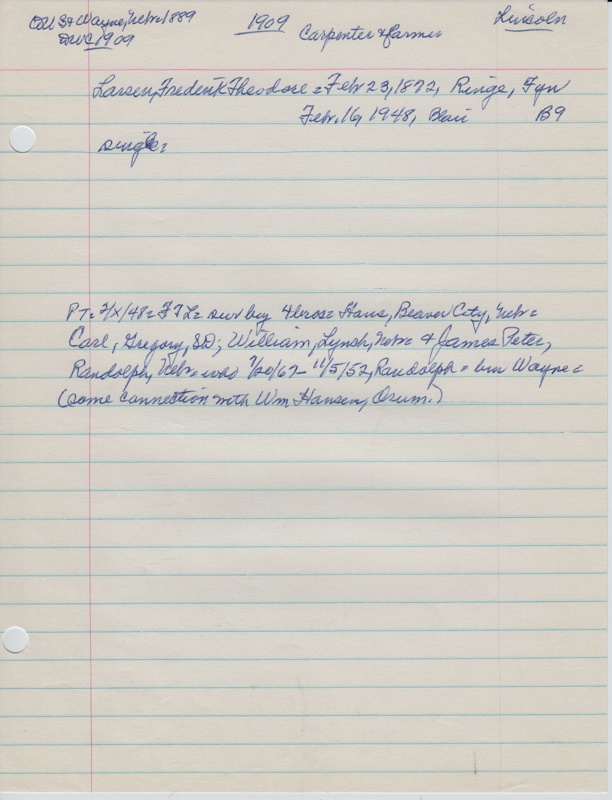 Wayne, Nebr. 1889 1909 Carpenter & farmer Lincoln
DWC 1909
Larsen, Frederik Theodore = Feb 23, 1872, Ringe, Fyn
Feb. 16, 1948, Blair B9
single =
PT = 2/X/48 = F T L = surv by 4 bros = Hans, Beaver City, Nebr =
Carl, Gregory, SD; William, Lynch, Nebr = & James Peter,
Randolph, Nebr = who 7/20/67 - 11/5/52, Randolph = bur Wayne =
(some connection with Wm Hansen, Orum.)